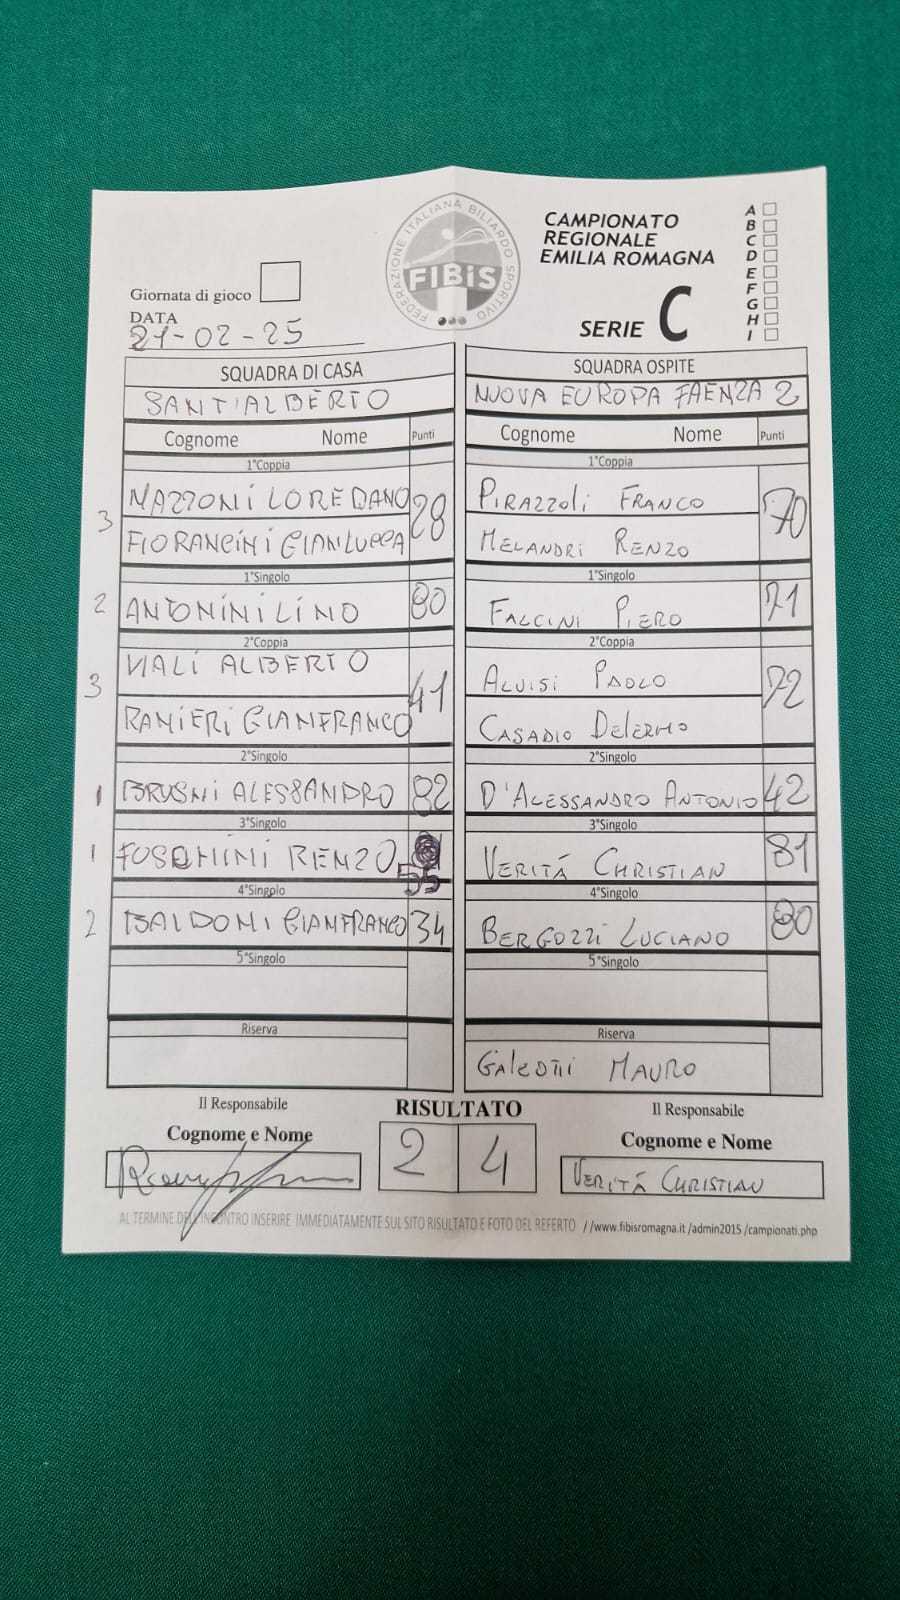 FEDERAZIONE ITALIANA BILIARDO SPORTIVO
FIBiS
CAMPIONATO
REGIONALE
EMILIA ROMAGNA
SERIE C
A
B
C
D
E
F
G
H
I
Giornata di gioco
DATA
21-02-25
SQUADRA DI CASA SQUADRA OSPITE
SANT'ALBERTO NUOVA EUROPA FAENZA 2
Cognome Nome Punti Cognome Nome Punti
1°Coppia 1°Coppia
3 MAZZONI LOREDANO 28 PIRAZZOLI FRANCO 70
FIORANCINI GIANLUCCA MELANDRI RENZO
1°Singolo 1°Singolo
2 ANTONINI LINO 80 FALCINI PIERO 71
2°Coppia 2°Coppia
3 VIALI ALBERTO 41 ALVISI PAOLO 72
RANIERI GIANFRANCO CASADIO DELERMO
2°Singolo 2°Singolo
1 BRUSNI ALESSANDRO 82 D'ALESSANDRO ANTONIO 42
3°Singolo 3°Singolo
1 FOSCHINI RENZO 55 VERITÁ CHRISTIAN 81
4°Singolo 4°Singolo
2 BALDONI GIANFRANCO 34 BERGOZZI LUCIANO 80
5°Singolo 5°Singolo
Riserva Riserva
GALEOTTI MAURO
Il Responsabile RISULTATO Il Responsabile
Cognome e Nome 2 4 Cognome e Nome
VERITÁ CHRISTIAN
AL TERMINE DELL'INCONTRO INSERIRE IMMEDIATAMENTE SUL SITO RISULTATO E FOTO DEL REFERTO //www.fibisromagna.it/admin2015/campionati.php